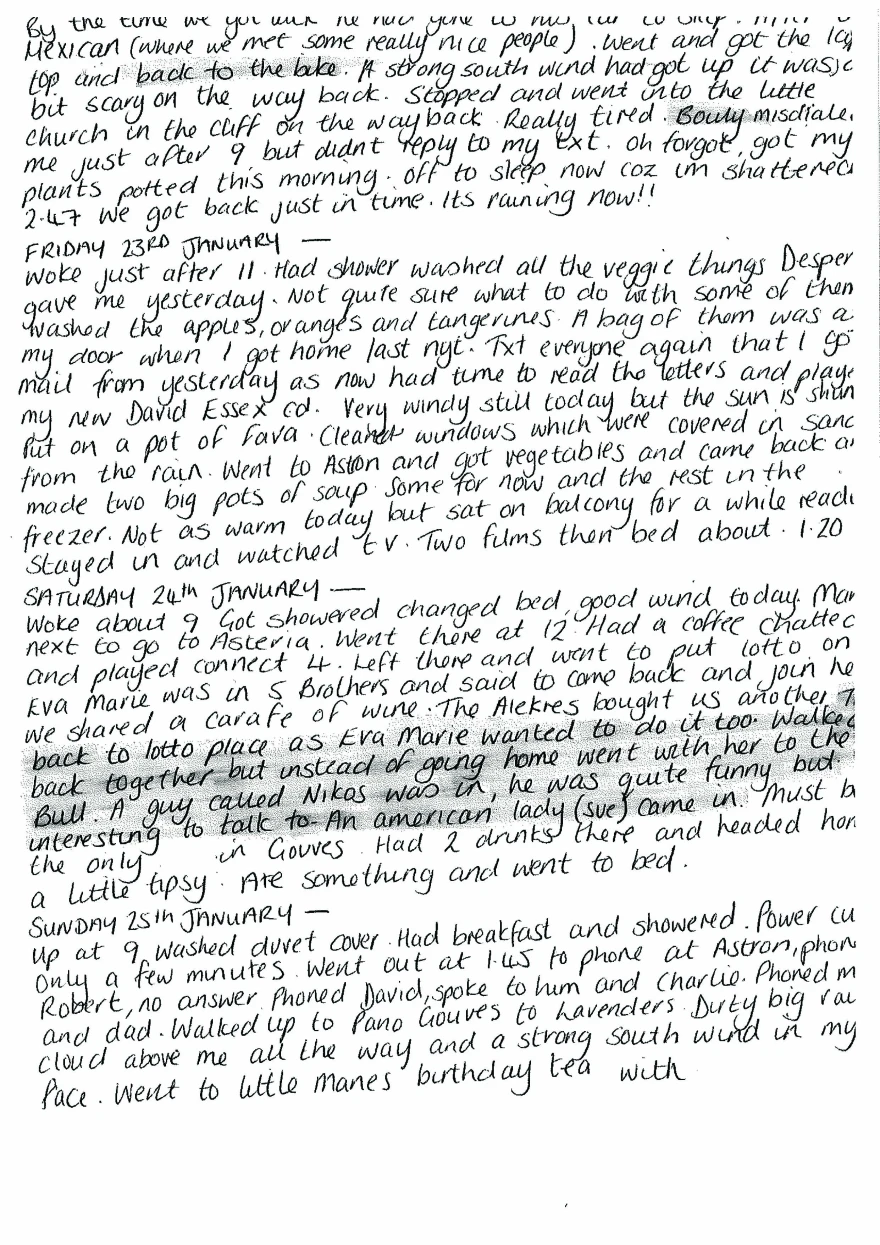 By the time we got back he had gone to his
Mexican (where we met some really nice people). Went and got the
top and back to the bike. A strong south wind had got up it was
bit scary on the way back. Stopped and went into the little
church in the cliff on the way back. Really tired. Bouly misdiale
me just after 9 but didnt reply to my txt. oh forgot, got my
plants potted this morning. off to sleep now coz im shattered
2.47 We got back just in time. Its raining now!!
FRIDAY 23RD JANUARY —
Woke just after 11. Had shower washed all the veggie things Desper
gave me yesterday. Not quite sure what to do with some of them
Washed the apples, oranges and tangerines. A bag of them was a
my door when I got home last nyt. Txt everyone again that I go
mail from yesterday as now had time to read the letters and playe
my new David Essex cd. Very windy still today but the sun is shin
Put on a pot of Fava. Cleaned windows which were covered in sand
from the rain. Went to Aston and got vegetables and came back a
made two big pots of soup some for now and the rest in the
freezer. Not as warm today but sat on balcony for a while readi
Stayed in and watched t v. Two films then bed about. 1.20
SATURDAY 24th JANUARY —
Woke about 9 Got showered changed bed, good wind today. Mar
next to go to Asteria. Went there at 12 Had a coffee chatted
and played connect 4. Left there and went to put lotto on
Eva Marie was in 5 Brothers and said to come back and join he
we shared a carafe of wine. The Alekres bought us another.
back to lotto place as Eva Marie wanted to do it too. Walked
back together but instead of going home went with her to the
Bull. A guy called Nikos was in, he was quite funny but
interesting to talk to. An american lady (sue) came in. Must b
the only in Gouves. Had 2 drinks there and headed hom
a little tipsy. Ate something and went to bed.
SUNDAY 25th JANUARY —
Up at 9 Washed duvet cover. Had breakfast and showered. Power cu
Only a few minutes. Went out at 1.45 to phone at Astron, phon
Robert, no answer Phoned David, spoke to him and Charlie. Phoned m
and dad. Walked up to Pano Gouves to Lavenders Dirty big rai
cloud above me all the way and a strong south wind in my
Face. Went to little manes birthday tea with